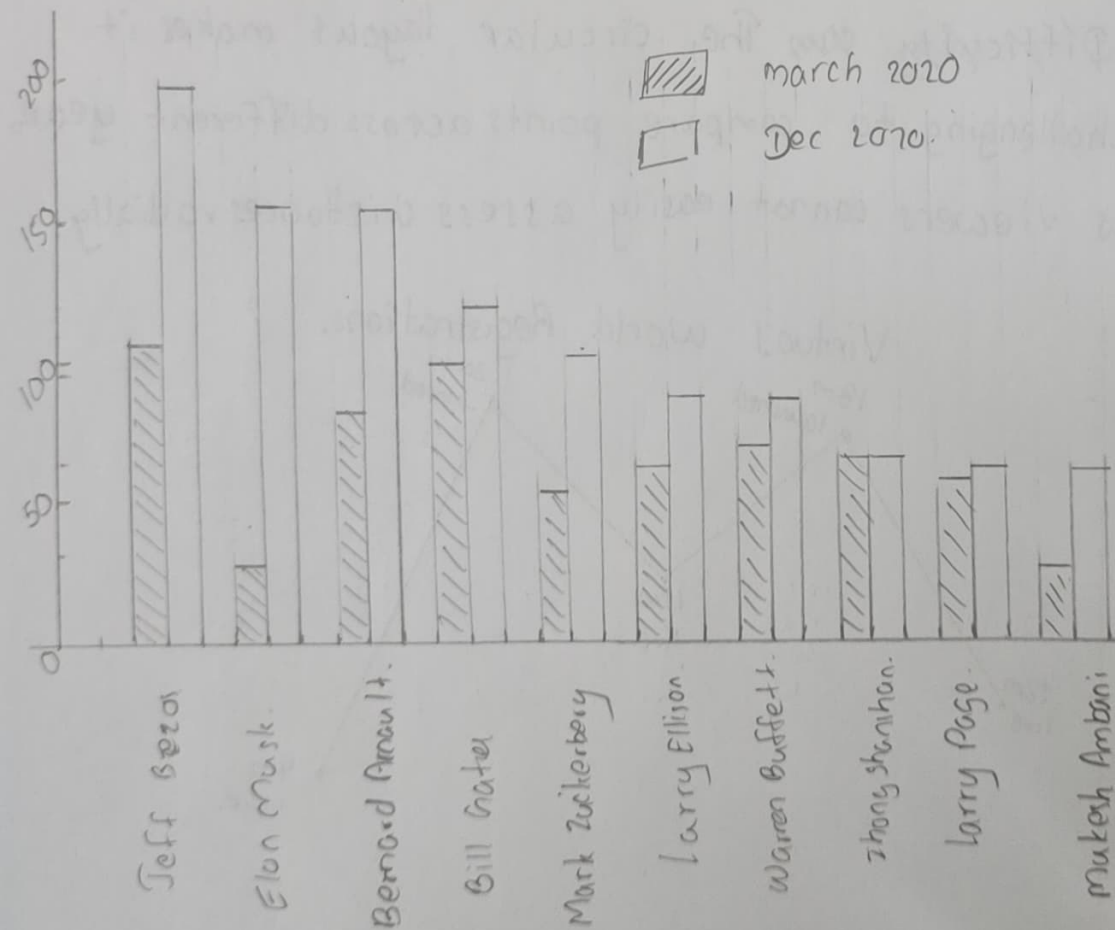 200
150
100
50
0
march 2020
Dec 2020.
Jeff Bezos
Elon Musk.
Bernard Arnault.
Bill Gates
Mark Zuckerberg
Larry Ellison.
Warren Buffett.
Zhong Shanshan.
Larry Page.
Mukesh Ambani